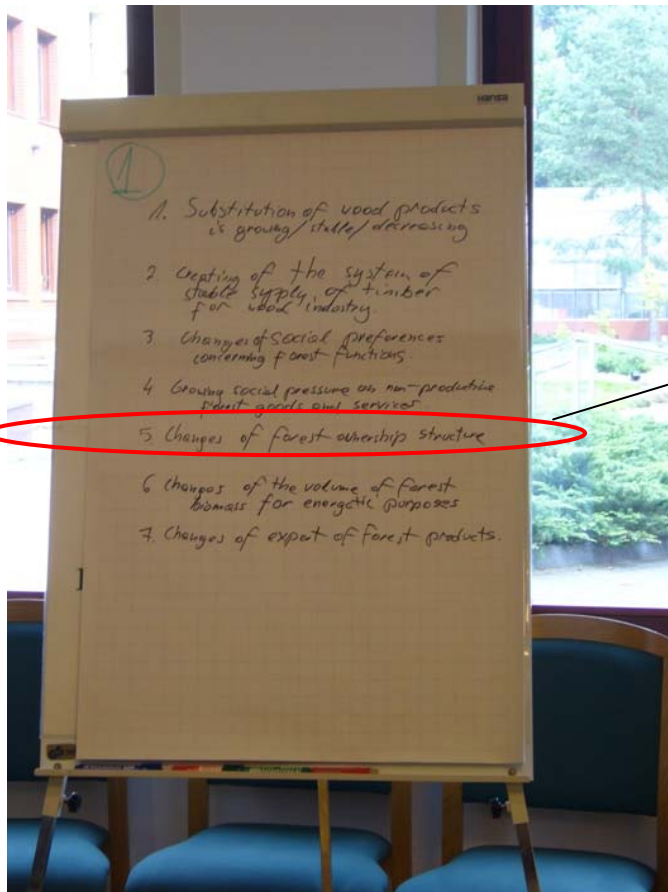 Hansa
1
1. Substitution of wood products
is growing/stable/decreasing
2 Creating of the system of
stable supply of timber
for wood industry.
3 Changes of social preferences
concerning forest functions.
4 Growing social pressure on non-productive
forest goods and services.
5 Changes of forest ownership structure
6 Changes of the volume of forest
biomass for energetic purposes
7. Changes of export of forest products.